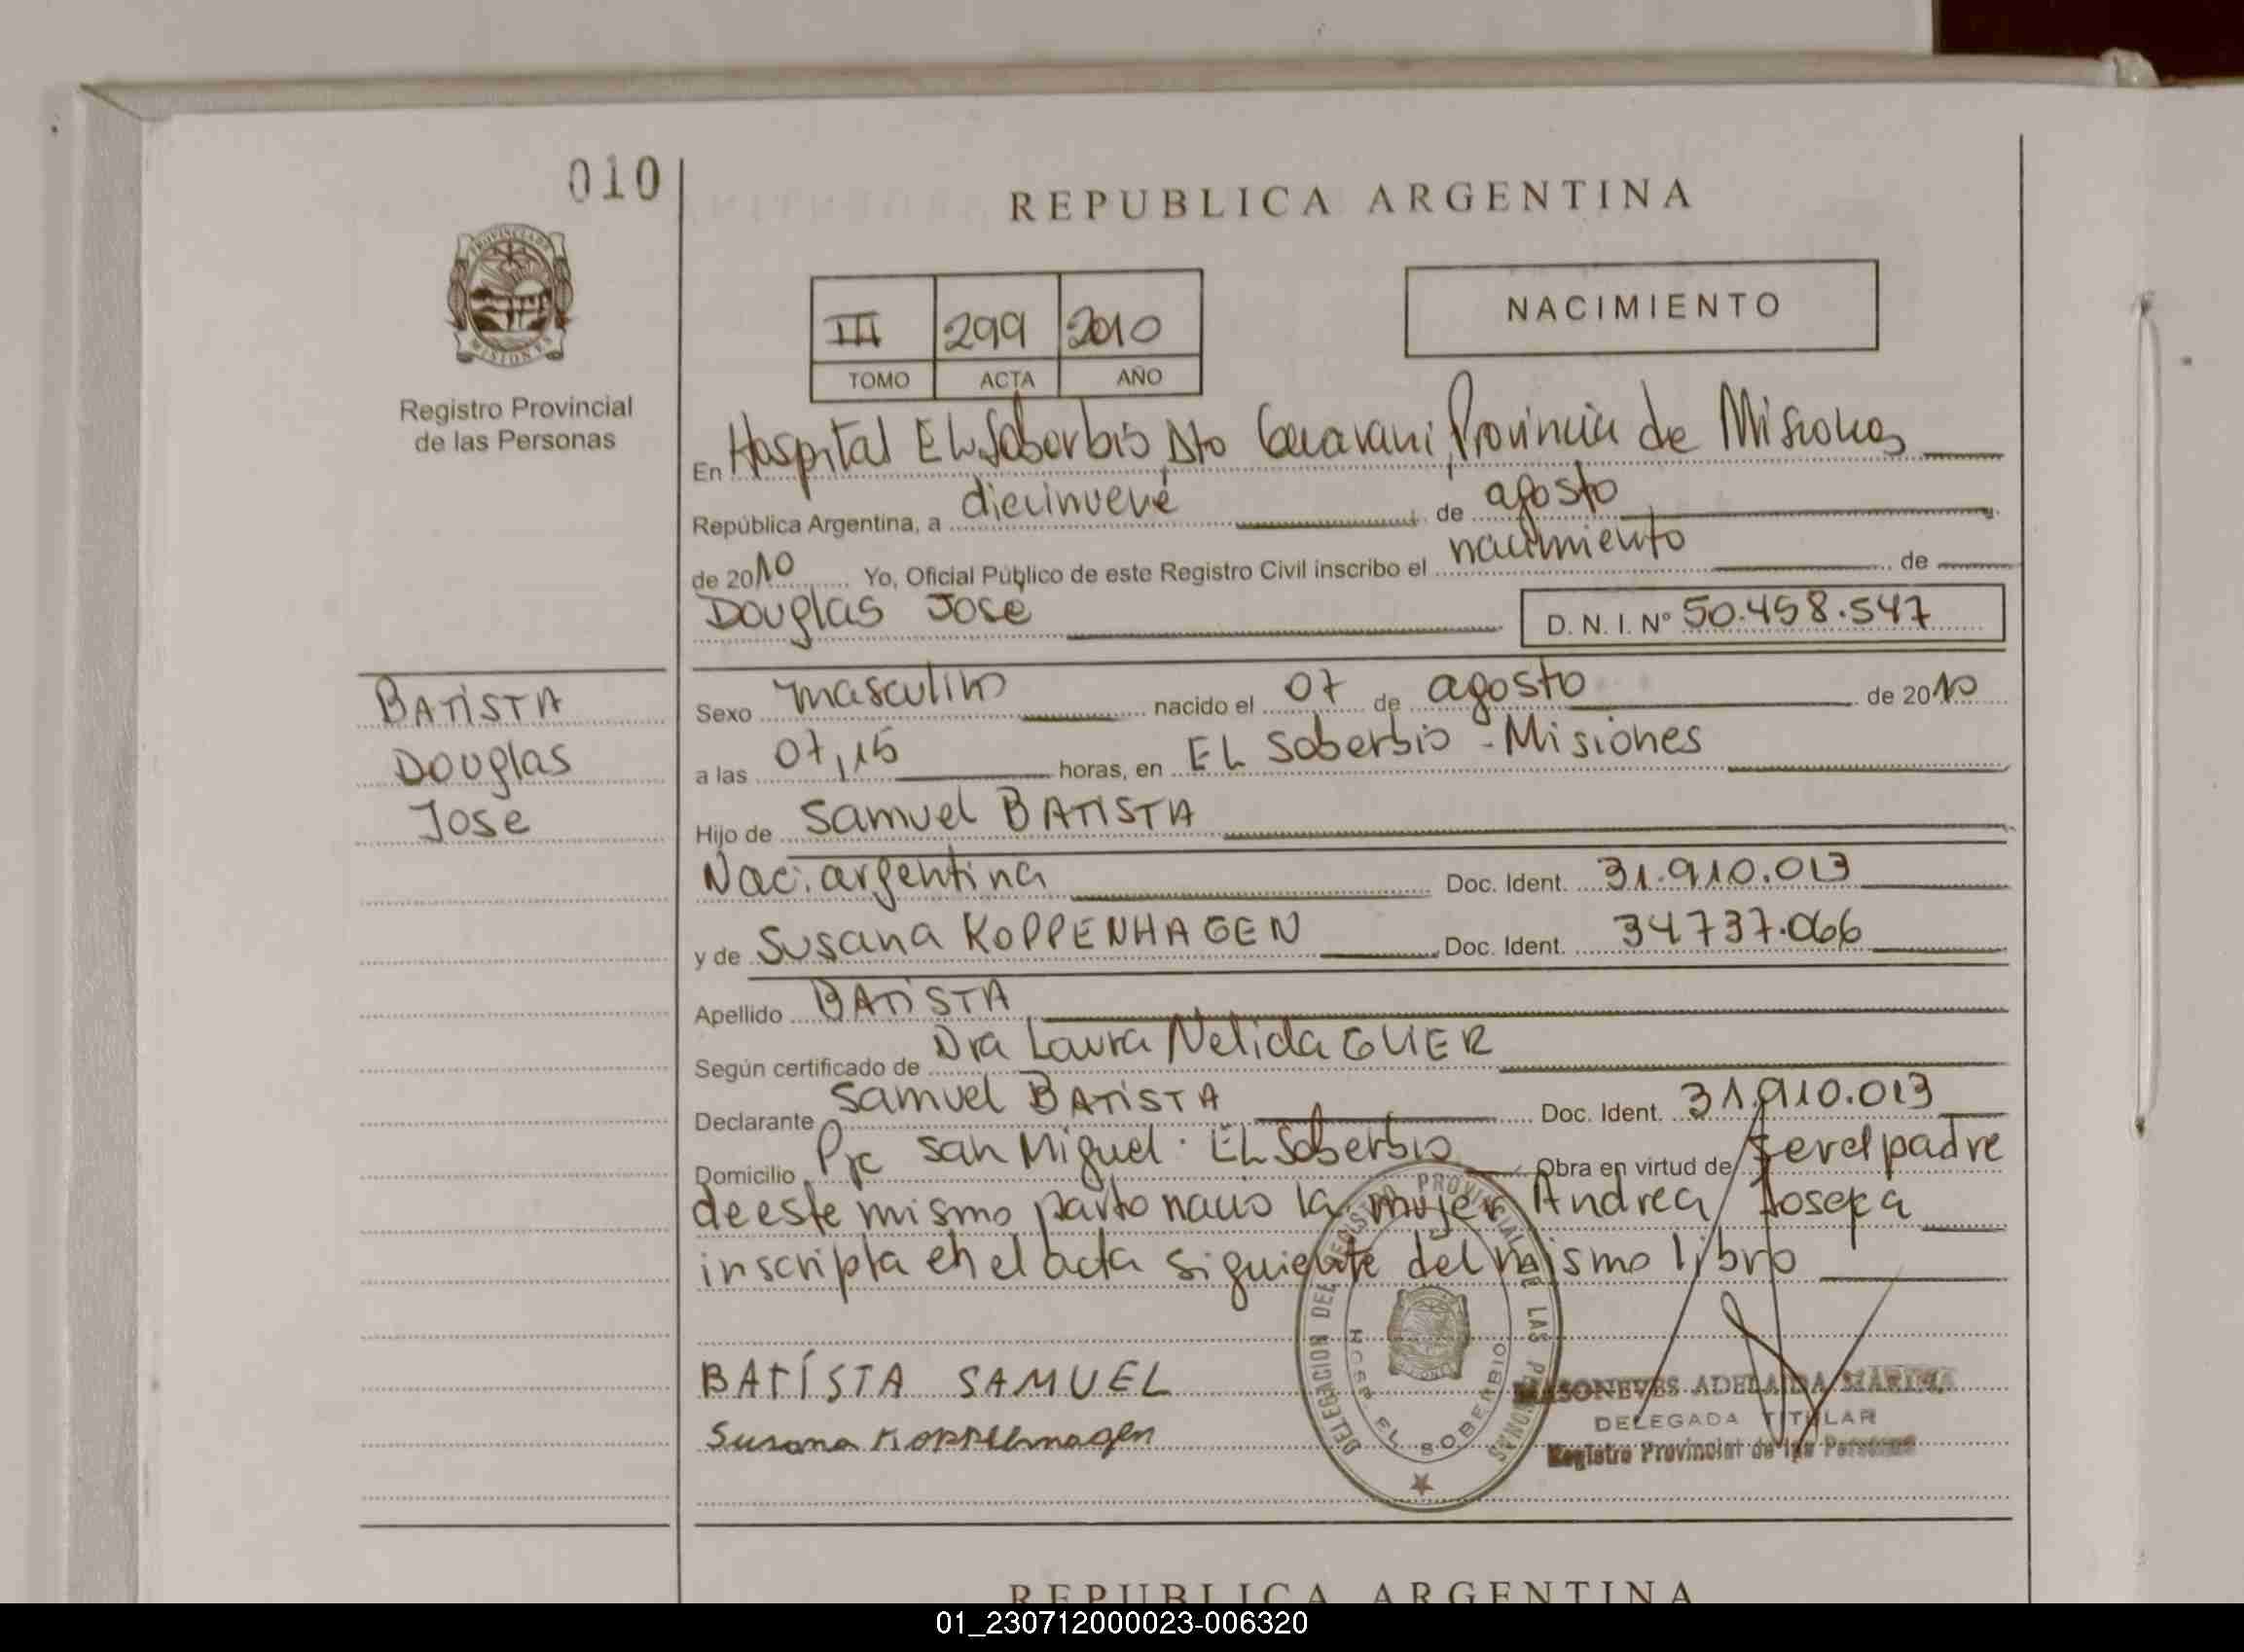 010
REPUBLICA ARGENTINA
PROVINCIA DE MISIONES
Registro Provincial
de las Personas
III 299 2010
TOMO ACTA AÑO
NACIMIENTO
En Hospital EL Soberbio, Dto Guarani, Provincia de Misiones
República Argentina, a diecinueve de agosto
de 2010 Yo, Oficial Público de este Registro Civil inscribo el nacimiento de
Douglas Jose D. N. I. Nº 50.458.547
BATISTA
Douglas
Jose
Sexo masculino nacido el 07 de agosto de 2010
a las 07,15 horas, en EL Soberbio - Misiones
Hijo de Samuel BATISTA
Nac. argentina Doc. Ident. 31.910.013
y de Susana KOPPENHAGEN Doc. Ident. 34737.066
Apellido BATISTA
Según certificado de Dra Laura Nelida GLIER
Declarante Samuel BATISTA Doc. Ident. 31.910.013
Domicilio Pje San Miguel. EL Soberbio Obra en virtud de ser el padre
de este mismo parto nacio la mujer Andrea Josefa
inscripta en el acta siguiente del mismo libro
BATÍSTA SAMUEL
Susana Koppenhagen
DELEGACION DEL REGISTRO PROVINCIAL DE LAS PERSONAS
HOSP. EL SOBERBIO
ADELAIDA
DELEGADA TITULAR
Registro Provincial de las Personas
REPUBLICA ARGENTINA
01_230712000023-006320